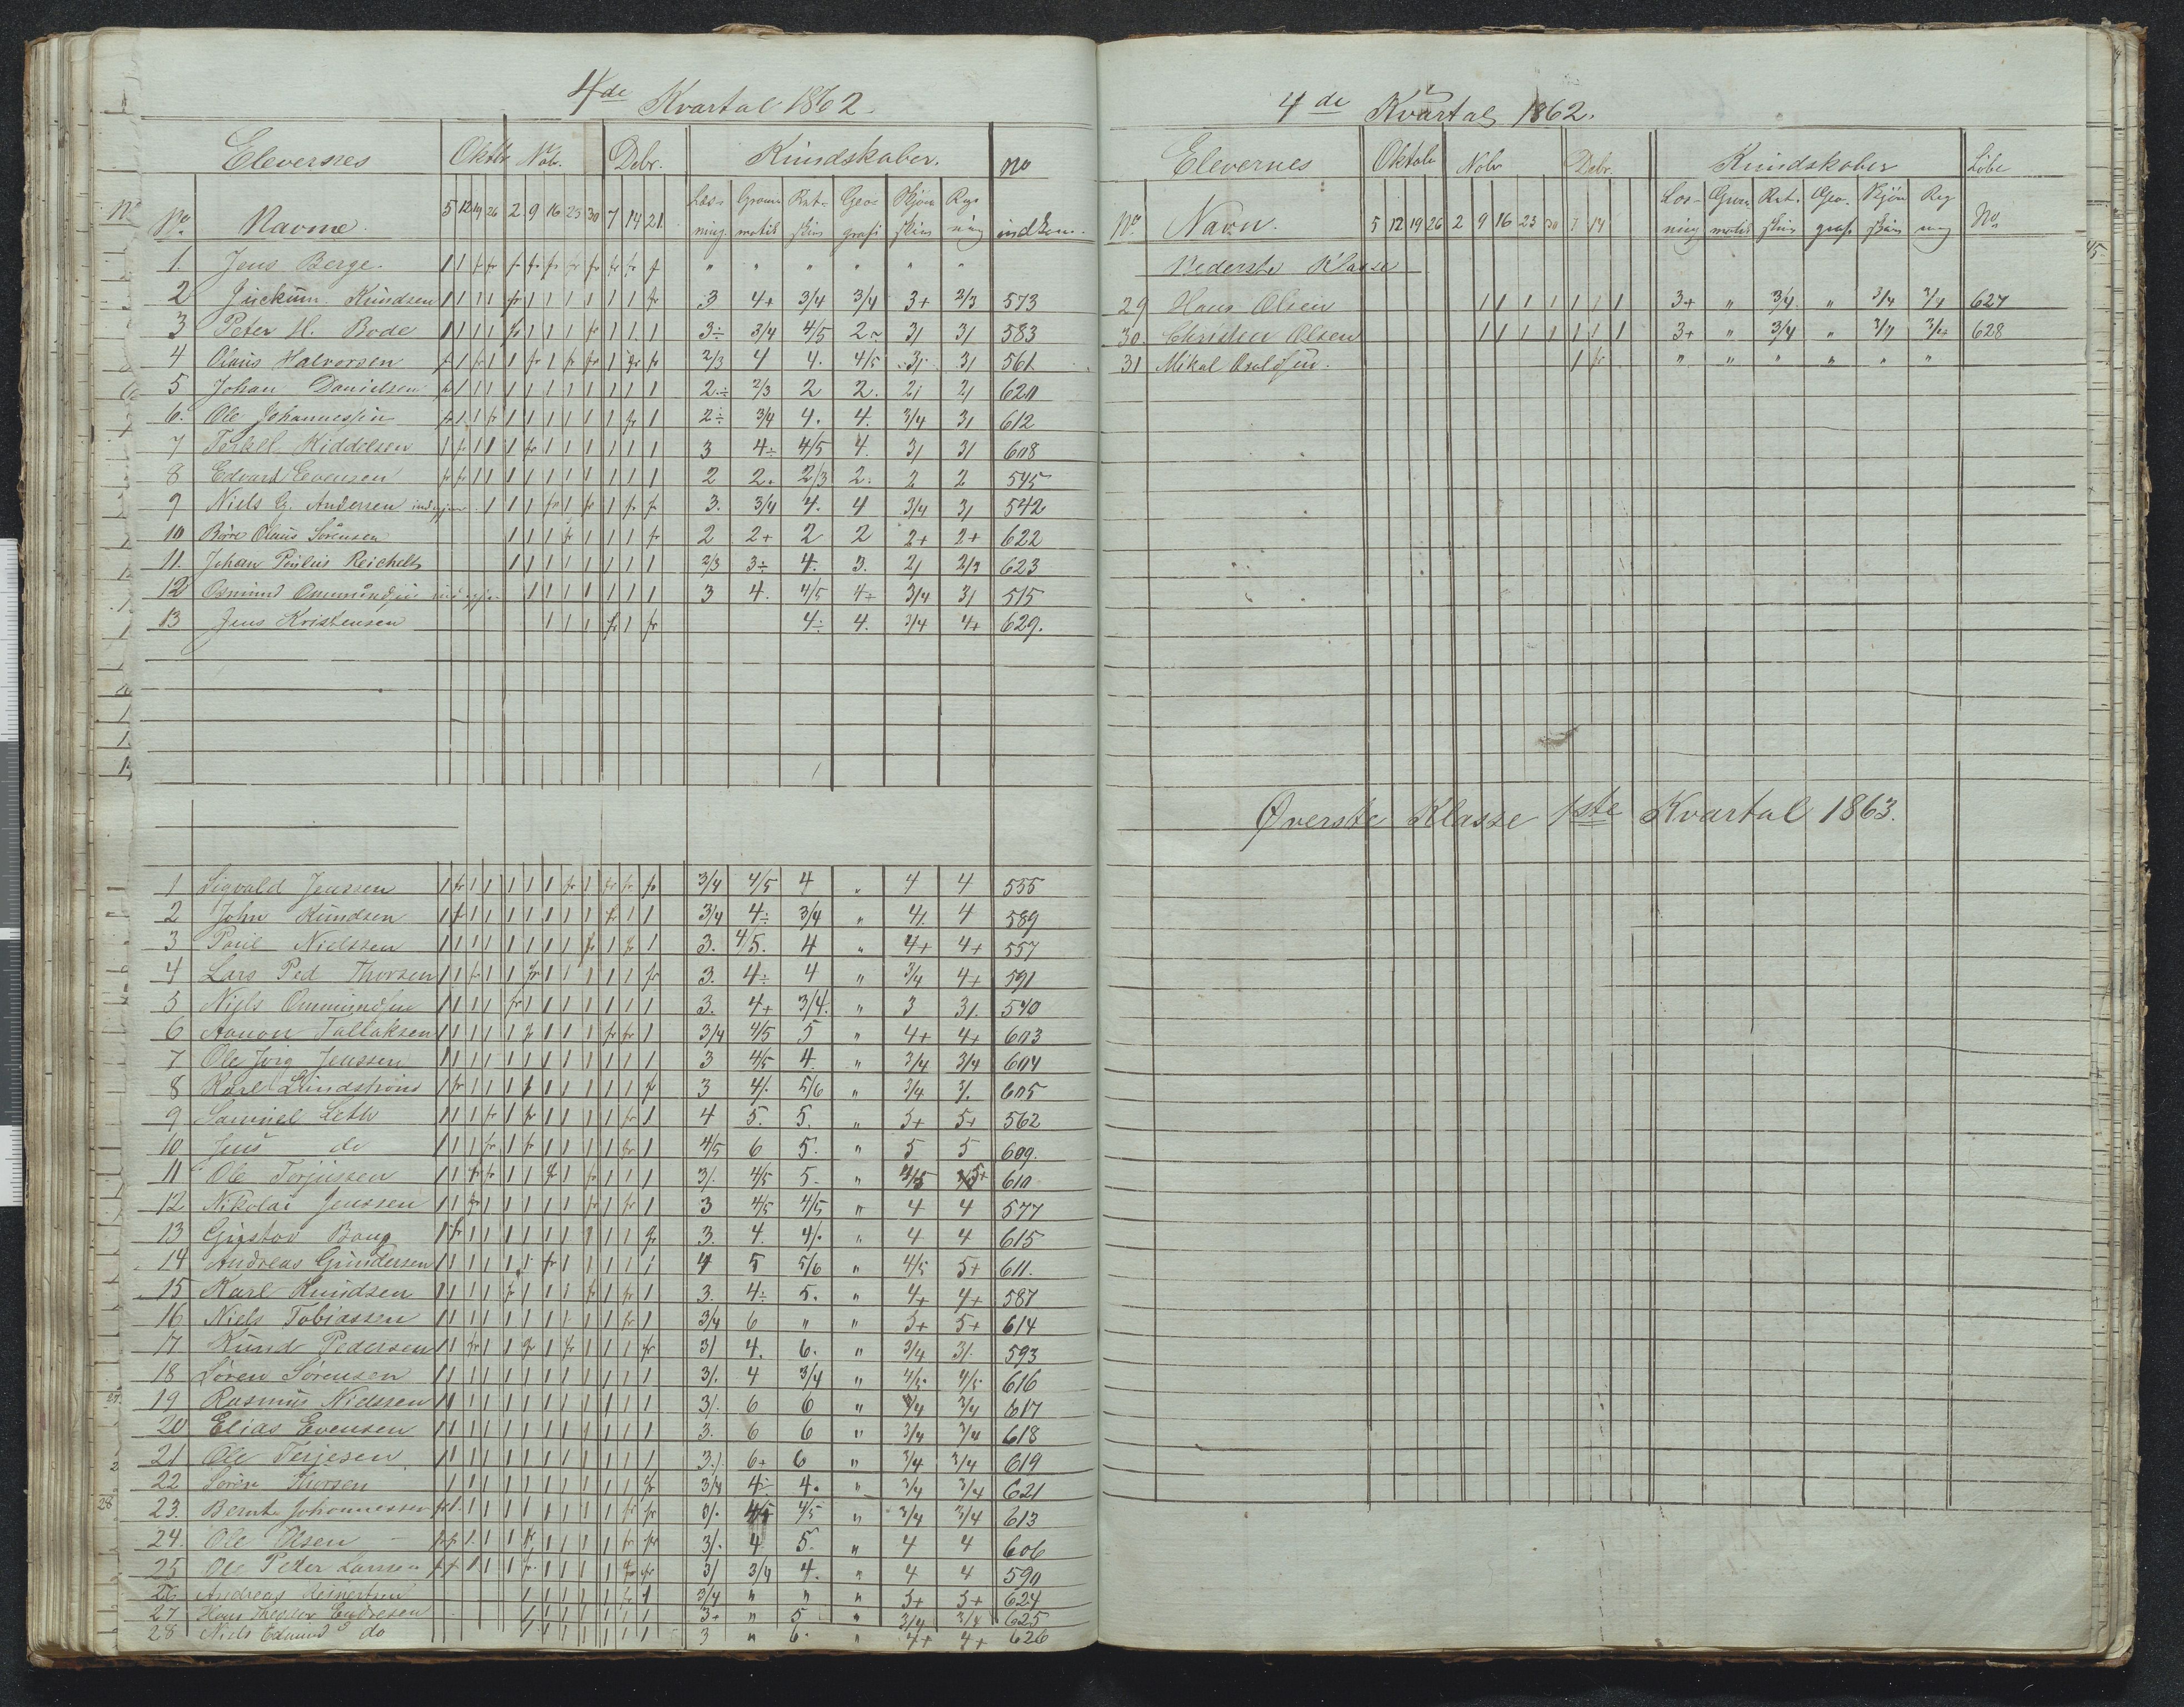 4de Kvartal 1862.
Elevernes Oktbr Nobr. Debr. Kundskaber. No
No. Navne. 5 12 19 26 2 9 16 23 30 7 14 21 Læsning. Grammatik Retskriv Geografi Skjønskriv Regning indkom.
1. Jens Berge. 1 1 fr fr fr fr fr fr fr fr fr fr " " " " " "
2 Knudsen 1 1 1 1 fr 1 1 1 1 1 1 fr 3 4+ 3/4 3/4 3+ 2/3 573
3 Peter H. Bode 1 1 1 1 fr 1 1 1 fr 1 1 1 3÷ 3/4 4/5 2 3/ 3/ 583
4 Olaus Halvorsen fr 1 fr 1 1 fr 1 fr fr 1 fr fr 2/3 4 4. 4/5 3/ 3/ 561
5 Johan Danielsen fr 1 1 1 1 1 1 1 1 1 1 1 2÷ 2/3 2 2. 2/ 2/ 620
6. Ole Johannessen fr 1 1 fr 1 1 1 1 1 1 fr 1 2÷ 3/4 4. 4. 3/4 3/ 612
7 Terkel Kiddelsen 1 fr 1 1 1 fr 1 1 1 1 1 1 3 4÷ 4/5 4. 3/ 3/ 608
8 Edvard Evensen fr fr 1 1 1 1 1 1 1 1 1 1 2 2. 2/3 2. 2 2 545
9 Niels G. Andersen 1 1 1 fr 1 fr 1 fr fr 3. 3/4 4. 4 3/4 3/ 542
10 Børre Olaus Sørensen 1 1 1 fr 1 1 1 fr 2 2+ 2 2 2+ 2+ 622
11. Johan Paulus Reichelt 1 1 1 1 1 1 1 1 2/3 3÷ 4. 3. 2/ 2/3 623
12 Osmund Ommundsen 1 1 1 1 1 1 1 3 4. 4/5 4+ 3/4 3/ 515
13 Jens Kristensen 1 1 1 fr 1 fr 4÷ 4. 3/4 4+ 629.
1 Sigvald Jenssen 1 fr 1 1 1 1 1 fr 1 fr fr fr 3/4 4/5 4 " 4 4 555
2 John Knudsen 1 fr 1 1 1 1 1 1 1 fr 1 1 3/4 4÷ 3/4 " 4. 4 589
3 Paul Nielssen 1 1 1 1 1 1 1 1 fr 1 fr 1 3. 4/5. 4 " 4+ 4+ 557
4 Lars Ped Thorsen 1 1 fr 1 1 fr 1 1 1 1 1 fr 3. 4÷ 4 " 3/4 4+ 591
5 Niels Ommundsen 1 1 1 1 fr 1 1 1 1 1 1 1 3. 4+ 3/4. " 3 3/. 540
6 Aanon Tallaksen 1 1 1 1 1 fr 1 1 1 fr fr 1 3/4 4/5 5 " 4+ 4+ 603
7 Ole Jørg Jenssen 1 1 1 1 1 1 1 1 1 1 1 1 3 4/5 4. " 3/4 3/4 604
8 Karl Lundstrøm 1 fr 1 1 1 fr 1 1 1 1 1 fr 3 4/. 5/6 " 3/4 3/. 605
9 Samuel Leth 1 1 1 fr 1 fr 1 1 1 1 fr 1 4 5. 5. " 5+ 5+ 562
10 Jens do 1 1 1 fr 1 fr 1 1 1 1 fr 1 4/5 6 5. " 5 5 609.
11 Ole Terjussen 1 1 fr fr 1 1 fr 1 fr 1 1 1 3/. 4/5 5. " 4/5 5+ 610
12 Nikolai Jenssen 1 1 fr 1 1 1 1 1 fr 1 fr 1 3 4/5 4/5 " 4 4 577
13 Gustav Bang 1 fr 1 1 1 1 1 1 1 1 1 fr 3. 4. 4/. " 4 4 615
14 Andreas Gundersen 1 1 1 1 1 1 fr 1 1 1 1 1 4 5 5/6 " 4/5 5+ 611.
15 Karl Knudsen 1 1 1 1 fr 1 1 1 fr 1 fr 1 3. 4÷ 5. " 4+ 4+ 587
16 Niels Tobiassen 1 1 1 1 1 1 1 1 1 1 fr 1 3/4 6 " " 5+ 5+ 614
17 Knud Pedersen 1 1 fr 1 1 fr 1 fr 1 1 1 fr 3/ 4. 6. " 3/4 3/. 593
18 Søren Sørensen 1 1 1 1 1 1 1 1 1 1 1 1 3/. 4 3/4 " 4/5. 4/5. 616
19 Rasmus Nielssen 1 1 1 1 1 1 1 1 1 1 1 1 3/. 6 6 " 3/4 3/4 617
20 Elias Evensen 1 1 1 1 1 1 1 1 1 1 1 1 3. 6 6 " 3/4 3/4 618
21 Ole Terjesen 1 1 1 1 1 1 1 1 1 1 1 1 3/. 6+ 6 " 3/4 3/4 619
22 Søren Thorsen 1 1 1 1 1 1 1 1 1 1 fr 3/4 4÷ 4. " 3/4 3/4 621
23. Bernt Johannessen fr 1 1 1 1 1 1 1 1 1 fr fr 3/. 4/5 4/5 " 3/4 3/4 613
24. Ole Olsen fr fr 1 1 1 fr 1 1 1 1 fr fr 3/. 4 5. " 4 4 606
25 Ole Peter Larssen fr fr 1 1 1 fr 1 1 1 1 fr fr 3/ 3/4 4. " 4 4 590
26 Andreas Reinertsen 1 1 1 1 1 fr 1 3/4 " " " 5+ 5+ 624
27 Hans Theodor Endresen 1 1 1 1 1 1 1 3+ " 5 " 3/4 3/4 625
28 Niels Edmund do 1 1 1 1 1 1 1 3 " 6. " 4+ 4+ 626
4de Kvartal 1862.
Elevernes Oktob Nobr Debr. Kundskaber Løbe
No. Navn. 5 12 19 26 2 9 16 23 30 7 14 Læsning Gram matik Ret. skriv Geo. grafi Skjøn skriv Regning No.
Nederste Klasse
29 Hans Olsen 1 1 1 1 1 1 1 3+ " 3/4 " 3/4 3/4 627
30. Christian Olsen 1 1 1 1 1 1 1 3+ " 3/4 " 3/4 3/4 628
31 Mikal 1 fr " " " " " "
Øverste Klasse 1ste Kvartal 1863.